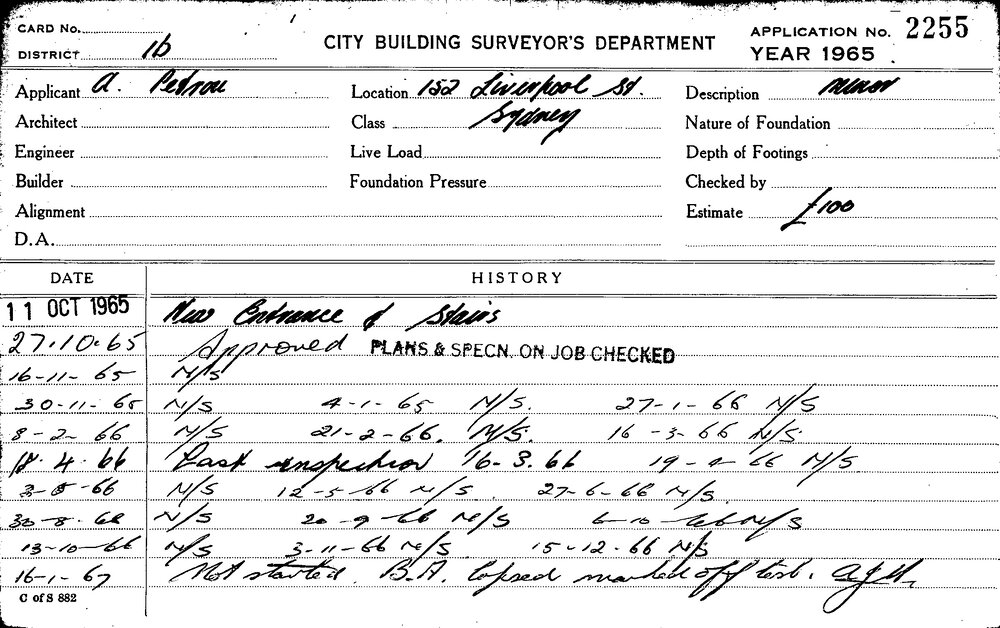 CARD No.
DISTRICT 1b
CITY BUILDING SURVEYOR'S DEPARTMENT
APPLICATION No. 2255
YEAR 1965
Applicant A. Petrou Location 152 Liverpool St. Description minor
Architect Class Sydney Nature of Foundation
Engineer Live Load Depth of Footings
Builder Foundation Pressure Checked by
Alignment Estimate £100
D.A.
DATE HISTORY
11 OCT 1965 New Entrance & Stairs
27.10.65 Approved PLANS & SPECN. ON JOB CHECKED
16-11-65 N/S
30-11-65 N/S 4-1-65 N/S. 27-1-66 N/S
8-2-66 N/S 21-2-66. N/S. 16-3-66 N/S
18.4.66 Last inspection 16-3.66 19-4-66 N/S.
3-5-66 N/S 12-5-66 N/S. 27-6-66 N/S.
30-8-66 N/S 20-9-66 N/S 6-10-66 N/S
13-10-66 N/S 3-11-66 N/S. 15-12-66 N/S
16-1-67 Not started. B.A. lapsed marked off list.
C of S 882